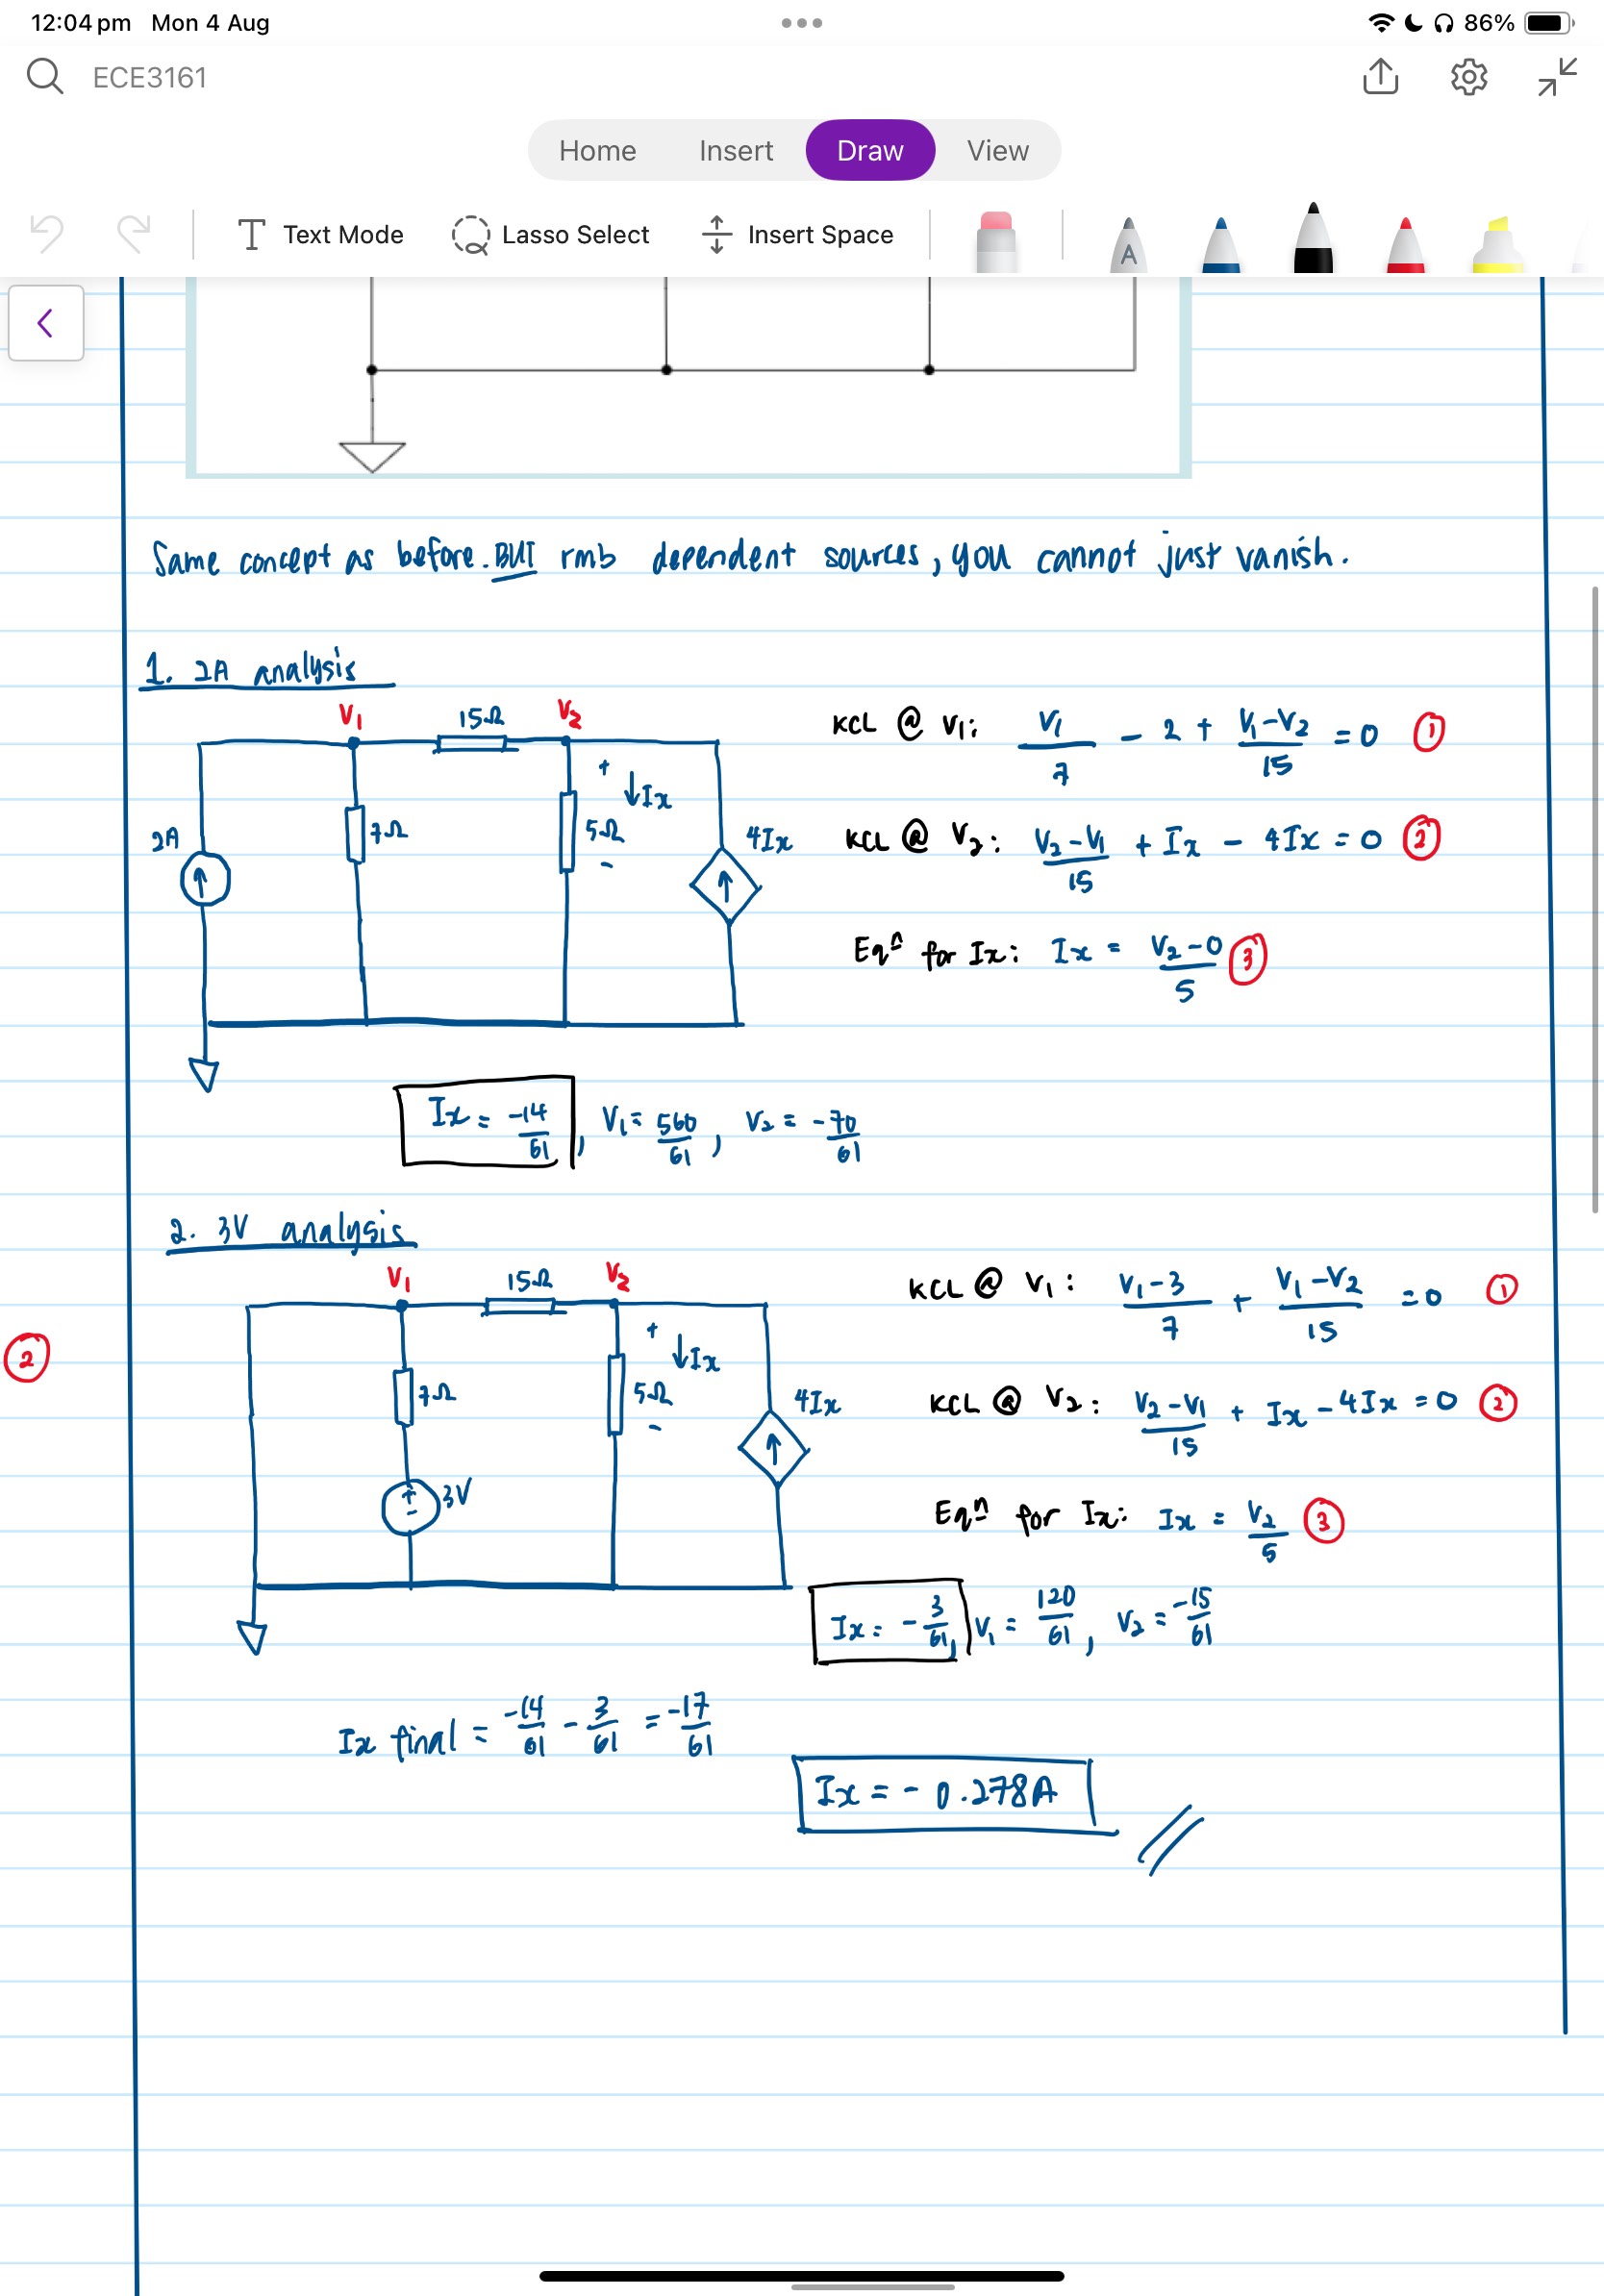 12:04 pm Mon 4 Aug 86%
ECE3161
Home Insert Draw View
T Text Mode Lasso Select Insert Space A
Same concept as before. BUT rmb dependent sources, you cannot just vanish.
1. 2A analysis
V1 15Ω V2
KCL @ V1: V1/7 - 2 + V1-V2/15 = 0 ①
+ ↓Ix
2A 7Ω 5Ω 4Ix
-
KCL @ V2: V2-V1/15 + Ix - 4Ix = 0 ②
Eqn for Ix: Ix = V2-0/5 ③
Ix = -14/61, V1 = 560/61, V2 = -70/61
2. 3V analysis
V1 15Ω V2
KCL @ V1: V1-3/7 + V1-V2/15 = 0 ①
②
+ ↓Ix
7Ω 5Ω 4Ix
-
KCL @ V2: V2-V1/15 + Ix - 4Ix = 0 ②
+ - 3V
Eqn for Ix: Ix = V2/5 ③
Ix = -3/61, V1 = 120/61, V2 = -15/61
Ix final = -14/61 - 3/61 = -17/61
Ix = - 0.278A